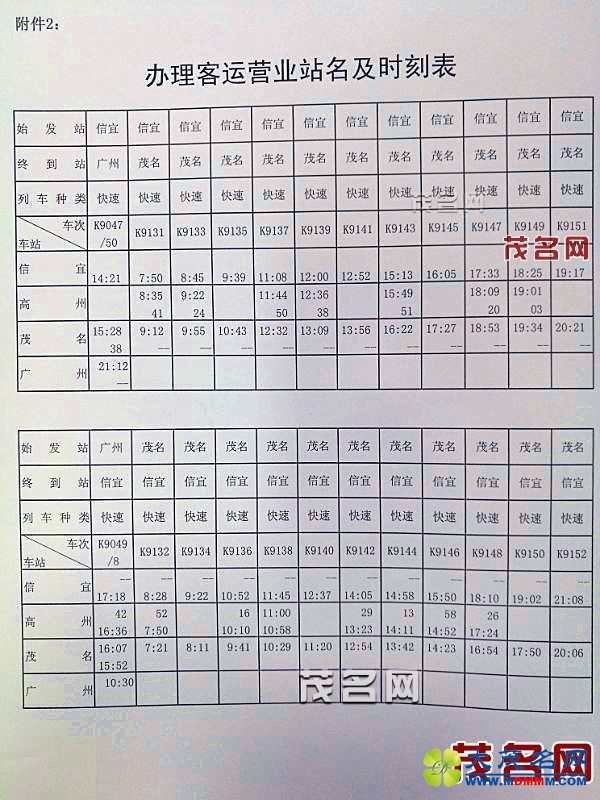 附件2：
办理客运营业站名及时刻表
始发站 信宜 信宜 信宜 信宜 信宜 信宜 信宜 信宜 信宜 信宜 信宜 信宜
终到站 广州 茂名 茂名 茂名 茂名 茂名 茂名 茂名 茂名 茂名 茂名 茂名
列车种类 快速 快速 快速 快速 快速 快速 快速 快速 快速 快速 快速 快速
车次 K9047 K9131 K9133 K9135 K9137 K9139 K9141 K9143 K9145 K9147 K9149 K9151
车站 /50
信宜 14:21 7:50 8:45 9:39 11:08 12:00 12:52 15:13 16:05 17:33 18:25 19:17
高州 8:35 9:22 11:44 12:36 15:49 18:09 19:01
41 24 50 38 51 20 03
茂名 15:28 9:12 9:55 10:43 12:32 13:09 13:56 16:22 17:27 18:53 19:34 20:21
38 -- -- -- -- -- -- -- -- -- -- --
广州 21:12
--
始发站 广州 茂名 茂名 茂名 茂名 茂名 茂名 茂名 茂名 茂名 茂名 茂名
终到站 信宜 信宜 信宜 信宜 信宜 信宜 信宜 信宜 信宜 信宜 信宜 信宜
列车种类 快速 快速 快速 快速 快速 快速 快速 快速 快速 快速 快速 快速
车次 K9049 K9132 K9134 K9136 K9138 K9140 K9142 K9144 K9146 K9148 K9150 K9152
车站 /8
-- -- -- -- -- -- -- -- -- -- -- --
信宜 17:18 8:28 9:22 10:52 11:45 12:37 14:05 14:58 15:50 18:10 19:02 21:08
高州 42 52 16 11:00 29 13 58 26
16:36 7:50 10:10 10:58 13:23 14:11 14:52 17:24
茂名 16:07 7:21 8:11 9:41 10:29 11:20 12:54 13:42 14:23 16:54 17:50 20:06
15:52
广州 10:30
茂名网
茂名网
茂名网
茂名网